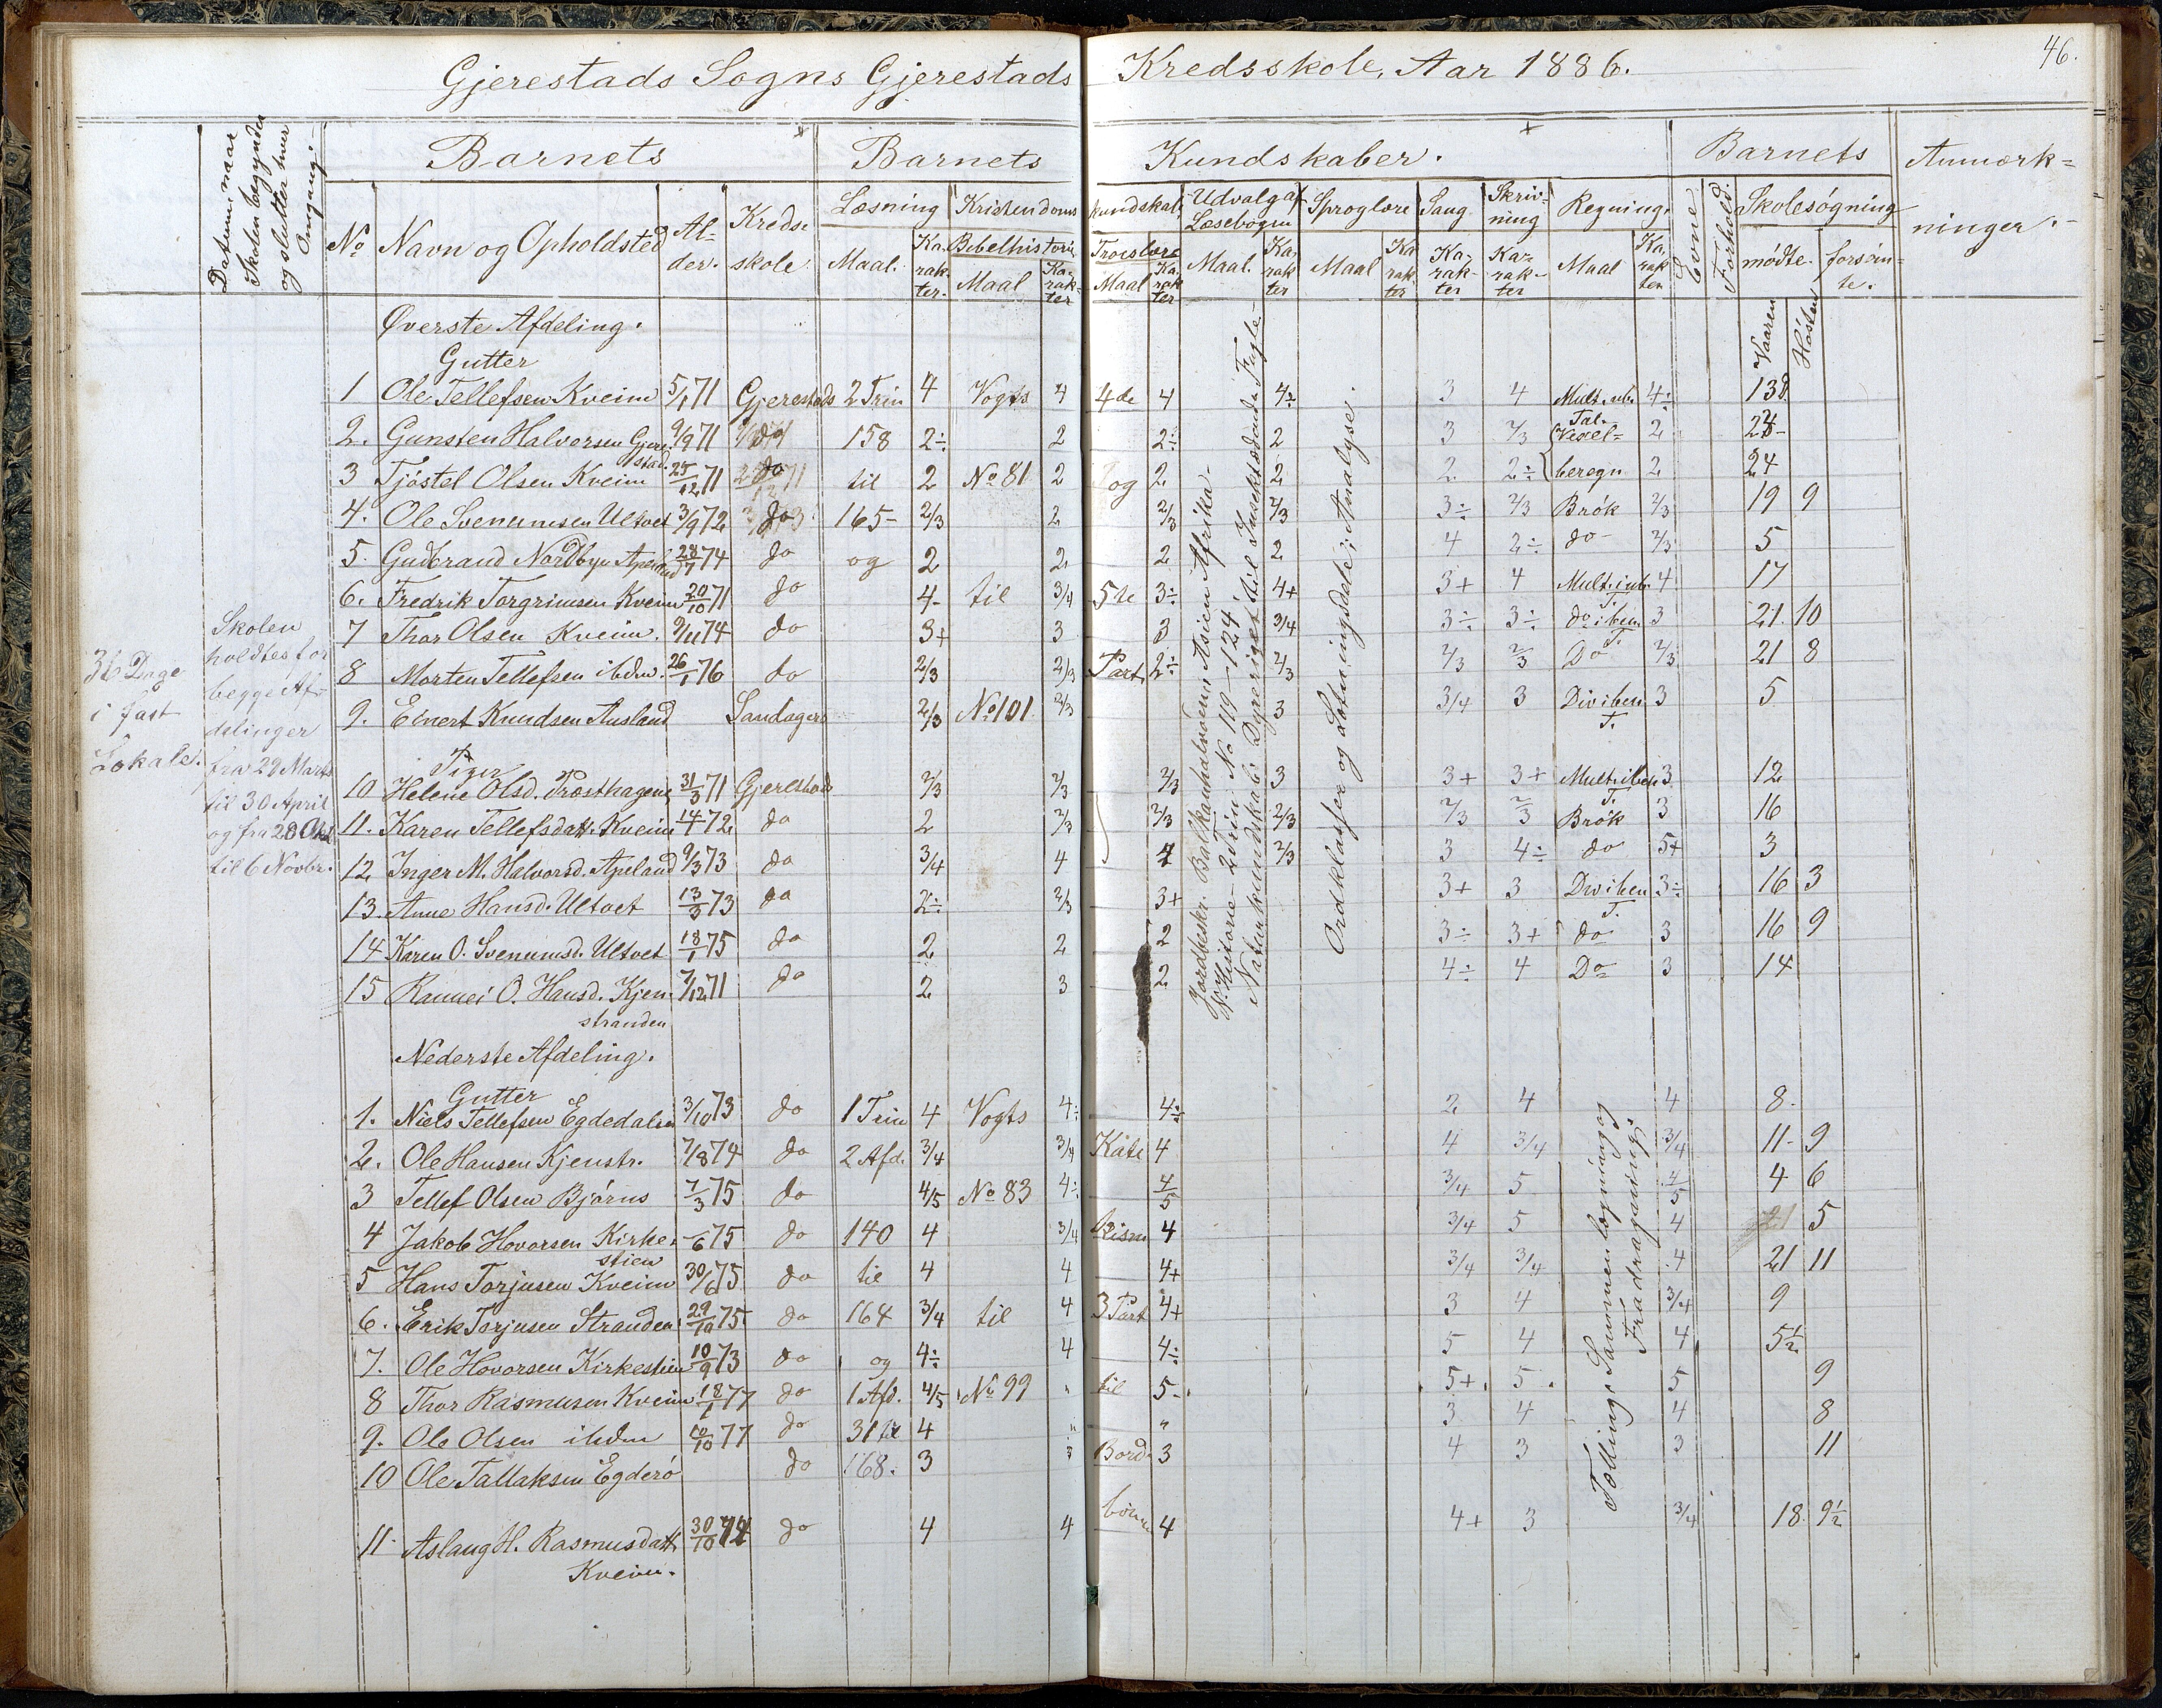 Gjerestads Sogns Gjerestads Kredsskole, Aar 1886.
46.
Datum, naar Skolen begynder og slutter hver Omgang.
Barnets
Barnets Kundskaber.
Barnets
Anmærk=
ninger.
No
Navn og Opholdsted
Al-
der.
Kreds-
skole
Læsning
Maal.
Ka-
rak-
ter.
Kristendoms kundskab
Bibelhistorie
Maal
Ka-
rak-
ter
Troeslære
Maal
Ka-
rak
ter
Udvalg af
Læsebogen
Maal.
Ka-
rak
ter
Sproglære
Maal
Ka
rak
ter
Sang
Ka-
rak-
ter
Skriv-
ning
Ka-
rak-
ter
Regning
Maal
Ka-
rak
ter
Evne
Forhold.
Skolesøgning
mødte.
forsøm-
te.
Vaaren
Høsten
36 Dage
i fast
Lokale.
Skolen
holdtes for
begge Af-
delinger
fra 29 Marts
til 30 April
og fra 28 Okt
til 6 Novbr.
Øverste Afdeling.
Gutter
1 Ole Tellefsen Kveim 5/1 71 Gjerestads 2 Trin 4 Vogts 4 4de 4 4÷ 3 4 4÷ 138
2. Gunsten Halvorsen Gjere-
stad. 9/9 71 do 158 2÷ 2 2÷ 2 3 2/3 Tal.
Vexel= 2 24-
3 Tjøstel Olsen Kveim 25/12 71 do til 2 No 81 2 og 2 2 2 2÷ beregn 2 24
4. Ole Svenumsen Ultvet 3/9 72 do 165- 2/3 2 2/3 2/3 3÷ 2/3 Brøk 2/3 19 9
5. Gudbrand Nordbye Apeland 28/7 74 do og 2 2 2 2 4 2÷ do- 2/3 5
6. Fredrik Torgrimsen Kveim 20/10 71 do 4- til 3/4 5te 3÷ 4+ 3+ 4 4 17
7 Thor Olsen Kveim. 9/11 74 do 3+ 3 3 3/4 3÷ 3÷ 3 21. 10
8 Morten Tellefsen ibdm. 26/1 76 do 2/3 2/3 Part. 2÷ 2/3 2/3 2/3 Do 2/3 21 8
9. Einert Knudsen Ausland Sandagers 2/3 No 101 2/3 3 3/4 3 3 5
Piger
10 Helene Olsd. Præsthagen 31/3 71 Gjerestads 2/3 2/3 2/3 3 3+ 3+ 3 12
11. Karen Tellefsdatt. Kveim 14/7 72 do 2 2/3 2/3 2/3 2/3 2/3 Brøk 3 16
12 Inger M. Halvorsd. Apeland 9/3 73 do 3/4 4 4 2/3 3 4÷ do 5+ 3
13. Anne Hansd. Ultvet 13/3 73 do 2÷ 2/3 3+ 3+ 3 3÷ 16 3
14 Karen O. Svenumsd. Ultvet 18/1 75 do 2 2 2 3÷ 3+ do 3 16 9
15 Rannei O. Hansd. Kjen-
stranden 7/12 71 do 2 3 2 4÷ 4 Do 3 14
Jordbeskr. Balkanhalvøen, Asien Afrika-
V. Historie- 2 Trin No 119-124
Naturkundskab: Dyreriget til Insektædende Fugle-
Ordklasser og Sætningsdele; Analyse.
Nederste Afdeling.
Gutter
1. Niels Tellefsen Egdedalen 3/10 73 do 1 Trin 4 Vogts 4÷ 4÷ 2 4 4 8-
2. Ole Hansen Kjenstr. 7/8 74 do 2 Afd. 3/4 3/4 Kate 4 4 3/4 3/4 11- 9
3 Tellef Olsen Bjørns 7/3 75 do 4/5 No 83 4÷ 4/5 3/4 5 4/5 4 6
4 Jakob Hovorsen Kirke-
stien -/6 75 do 140 4 3/4 kism 4 3/4 5 4 21 5
5 Hans Torjusen Kveim 30/6 75 do til 4 4 4+ 3/4 3/4 4 21 11
6. Erik Torjusen Stranden 29/10 75 do 164 3/4 til 4 3 Part 4+ 3 4 3/4 9
7. Ole Hovorsen Kirkestien 10/9 73 do og 4÷ 4 4÷ 5 4 4 5½
8 Thor Rasmusen Kveim 18/1 77 do 1 Afd. 4/5 No 99 " til 5- 5+ 5 5 9
9. Ole Olsen ibdm 10/10 77 do 31 til 4 " " 3 4 4 8
10 Ole Tallaksen Egderø do 168. 3 3 Bord- 3 4 3 3 11
11- Aslaug H. Rasmusdatt.
Kveim. 30/10 74 do 4 4 bønn 4 4+ 3 3/4 18 9½
Tælling, Sammenlægning og
Fradragning;